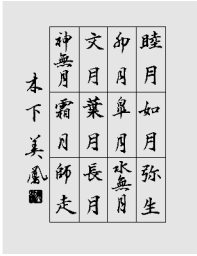 睦月
如月
弥生
卯月
皐月
水無月
文月
葉月
長月
神無月
霜月
師走
木下美鳳